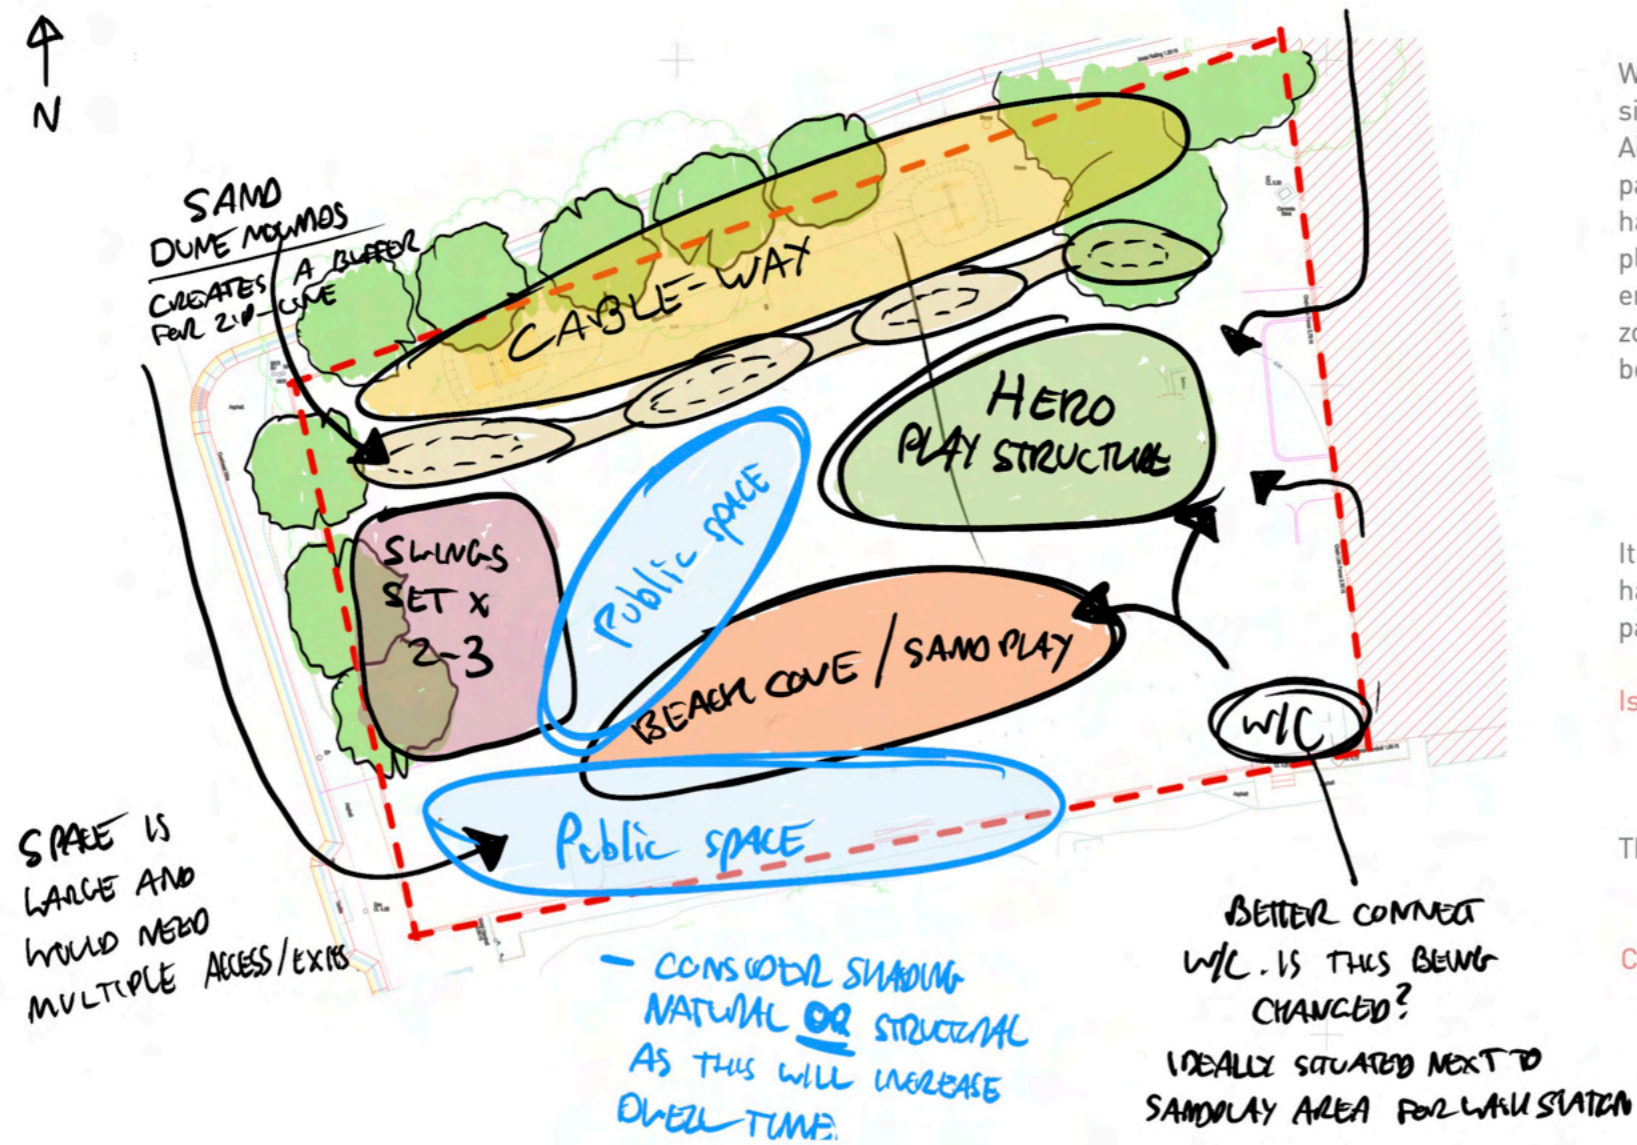 N
SAND
DUNE MOUNDS
CREATES A BUFFER
FOR ZIP-LINE
CABLE-WAY
HERO
PLAY STRUCTURE
SWINGS
SET X
2-3
Public space
BEACH COVE / SAND PLAY
W/C
Public space
SPACE IS
LARGE AND
WOULD NEED
MULTIPLE ACCESS/EXITS
- CONSIDER SHADING
NATURAL OR STRUCTURAL
AS THIS WILL INCREASE
DWELL TIME.
BETTER CONNECT
W/C. IS THIS BEING
CHANGED?
IDEALLY SITUATED NEXT TO
SANDPLAY AREA FOR WASH STATION
W
si
A
pa
ha
pl
er
zo
be
It
ha
pa
Is
Th
C